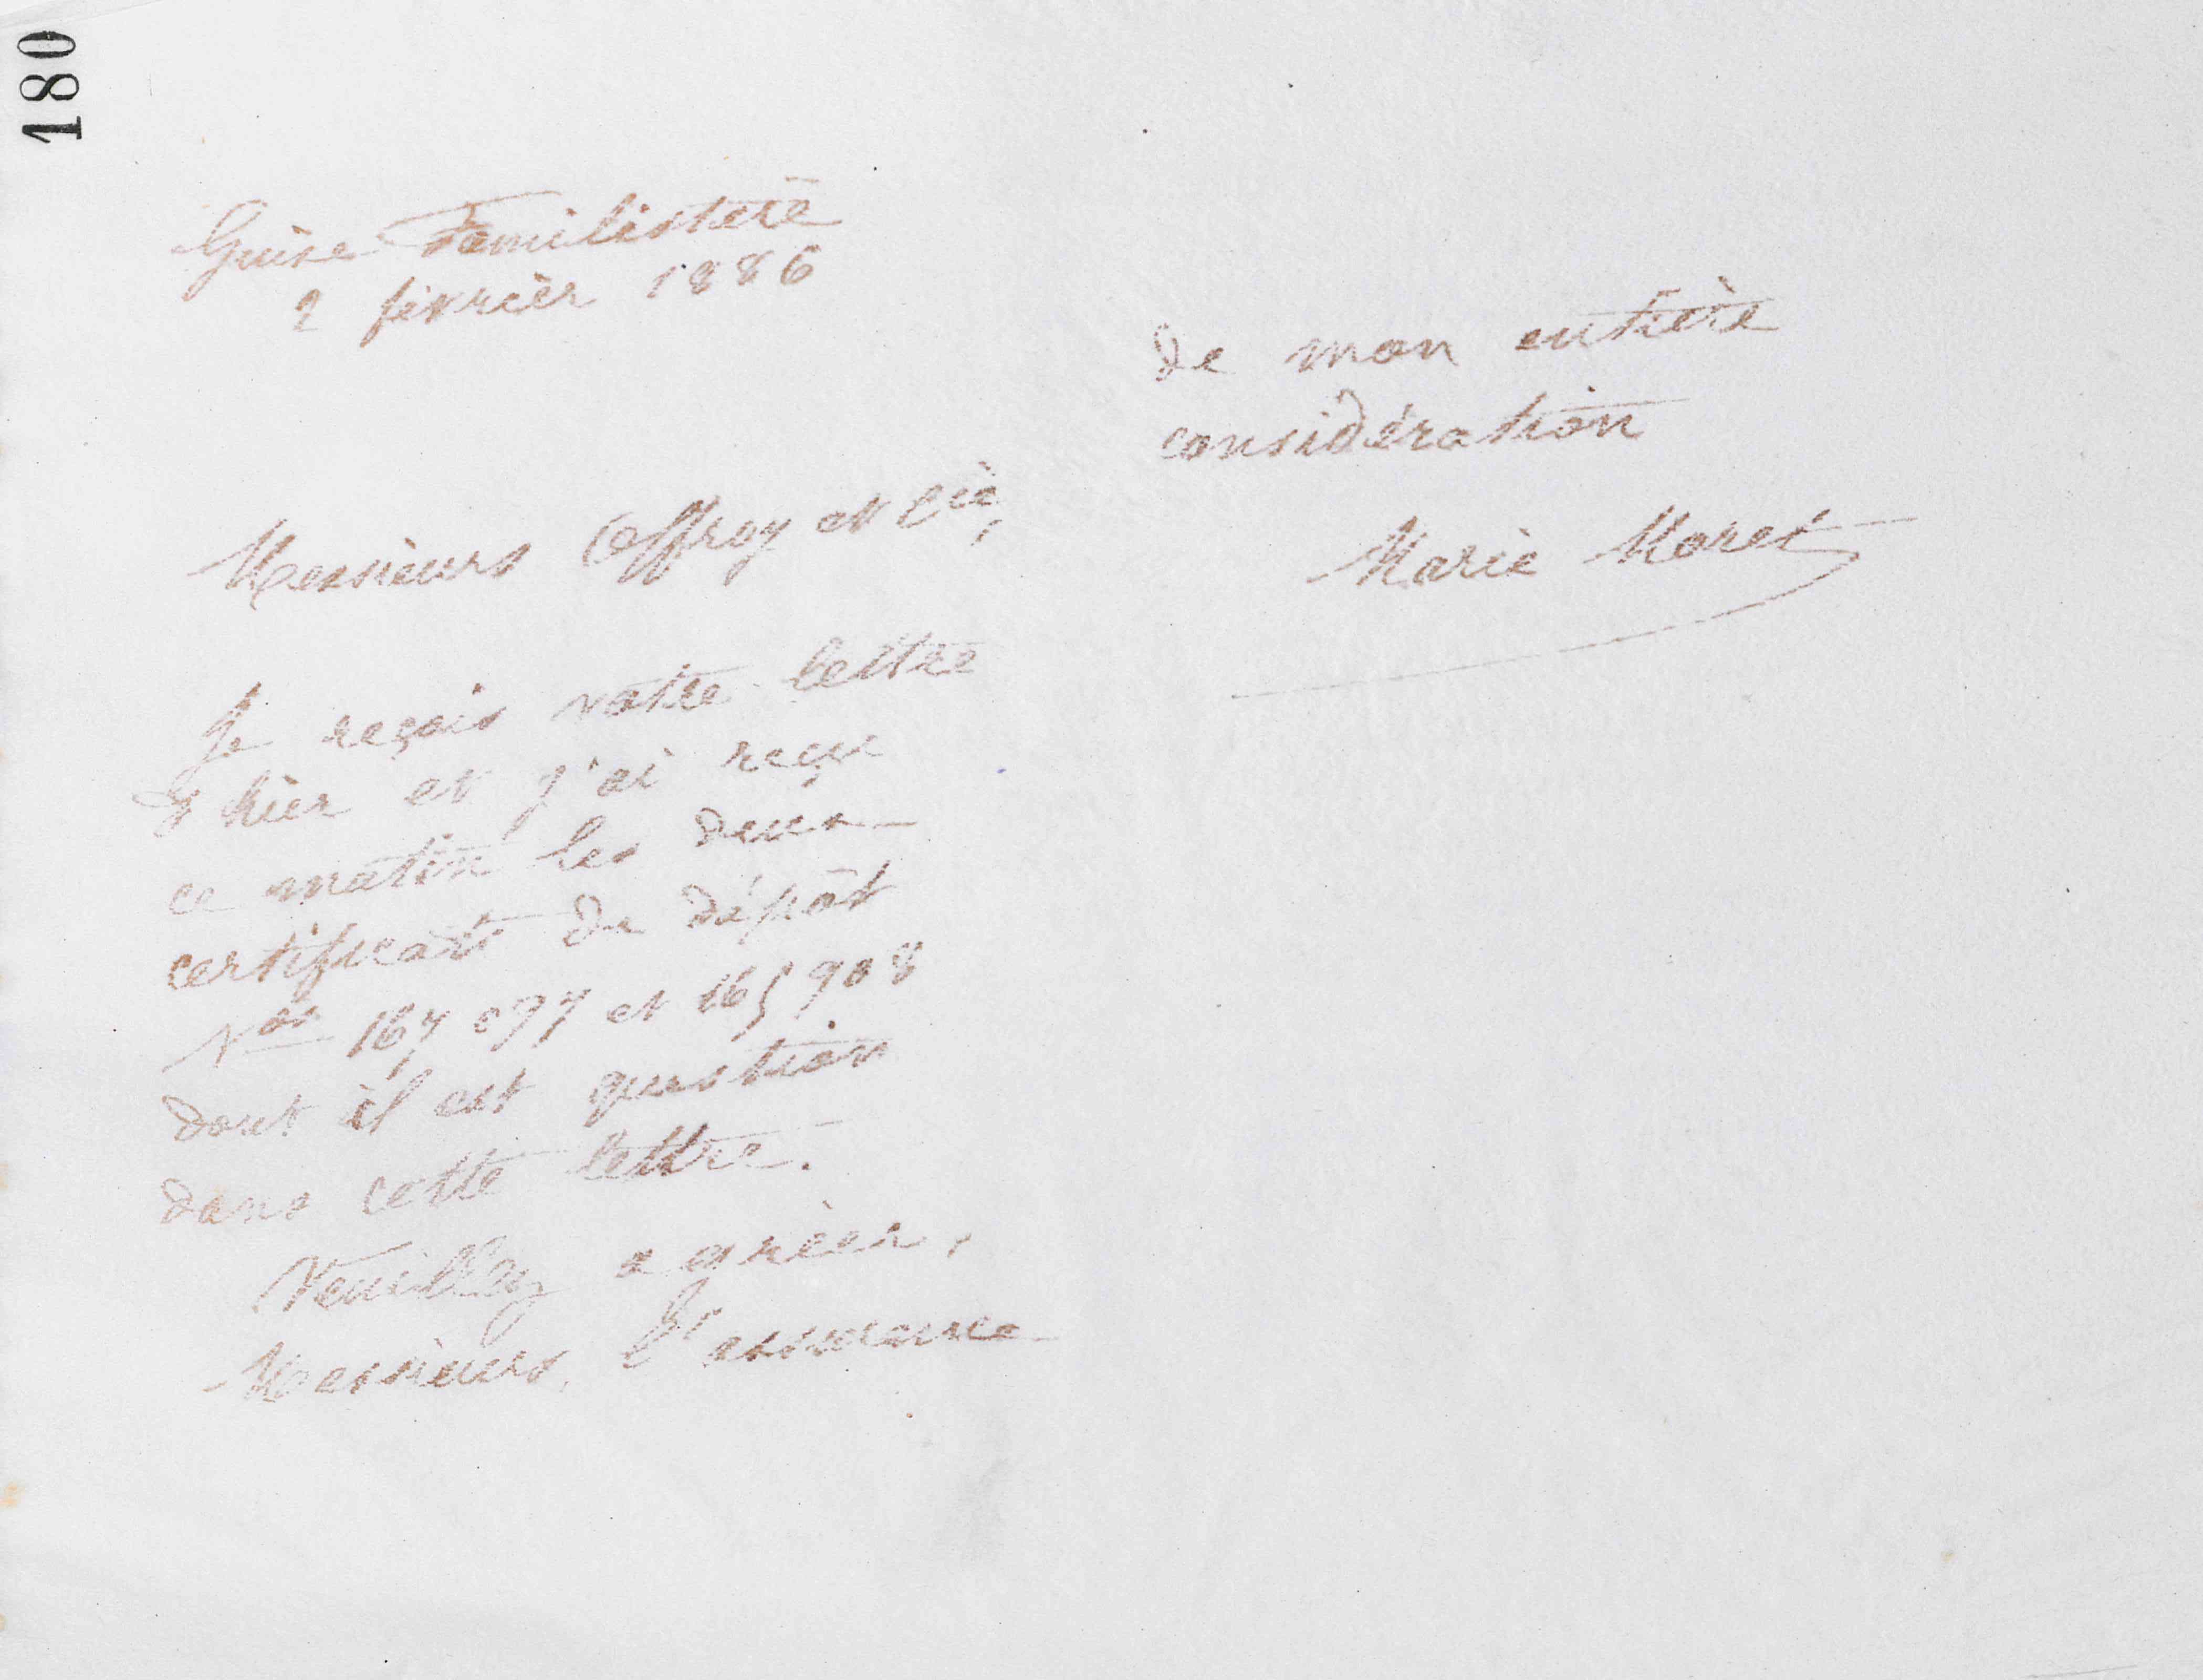 180
Guise Familistère
2 février 1886
Messieurs Coffroy et Cie,
Je reçois votre lettre
d'hier et j'ai reçu
ce matin les deux
certificats de dépôt
Nos 167 097 et 165 908
dont il est question
dans cette lettre.
Veuillez agréer,
Messieurs, l'assurance
de mon entière
considération
Marie Moret